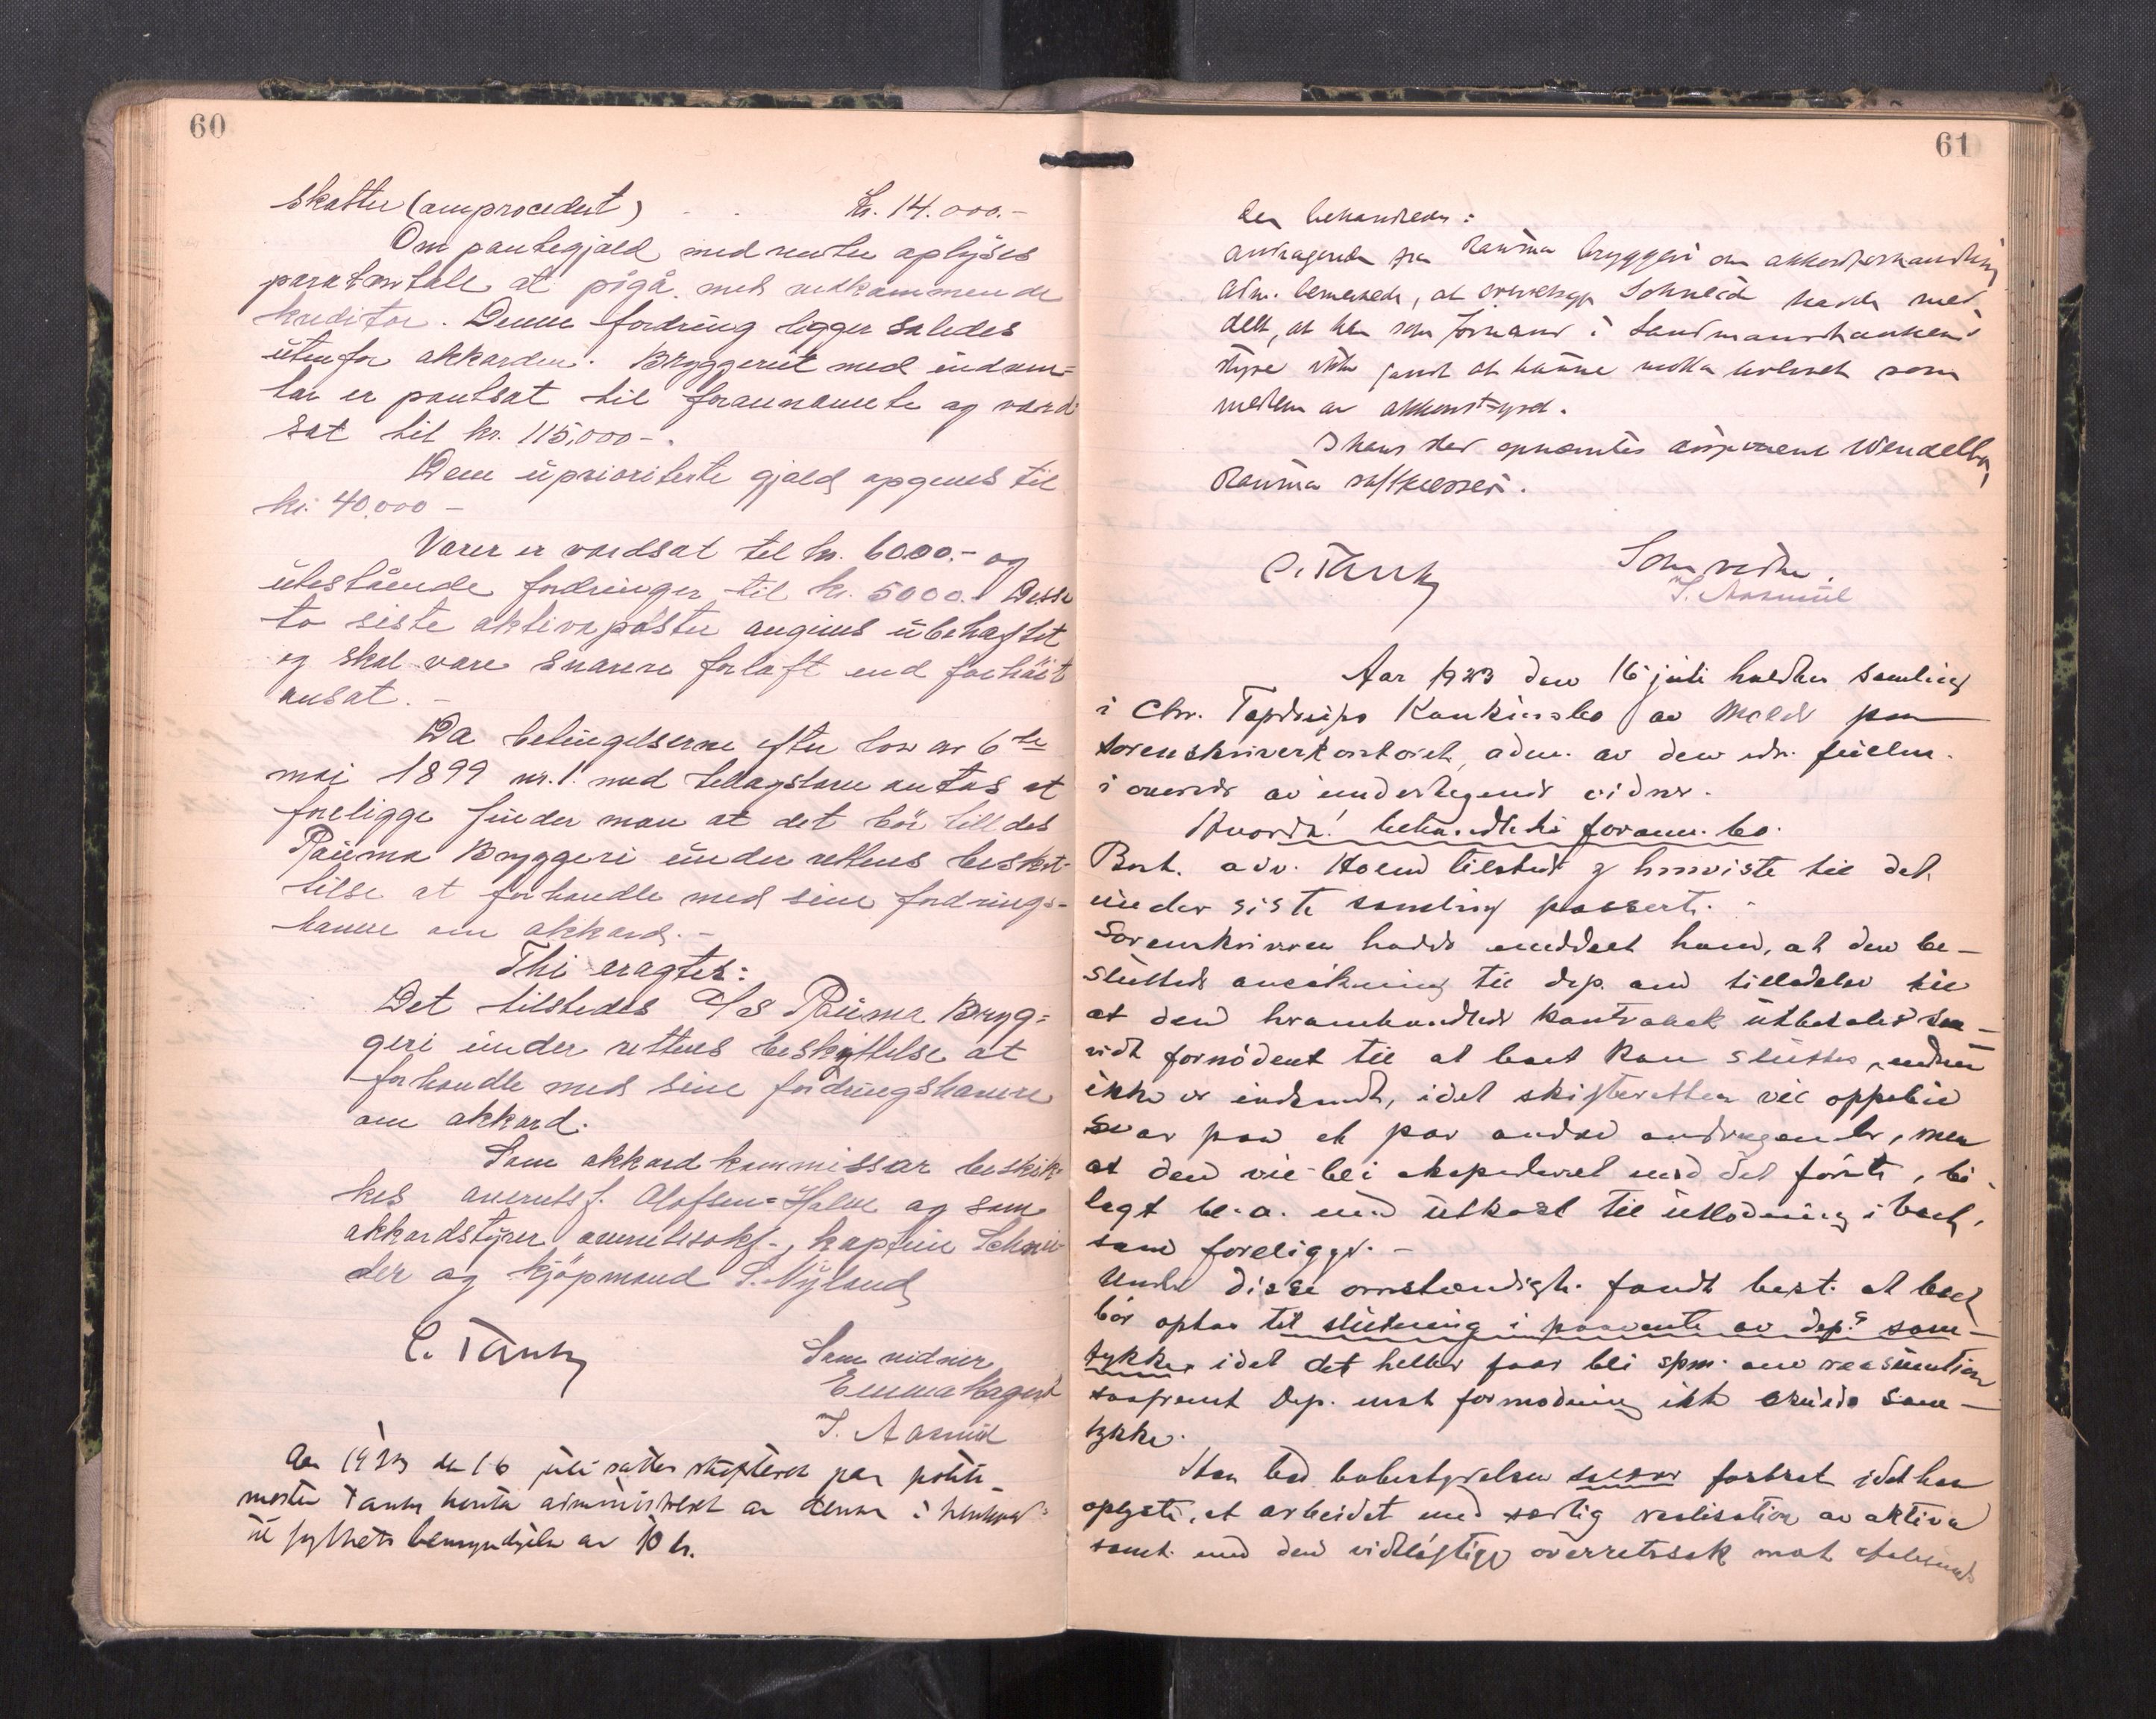 60
skatter (omprocedert) . . kr. 14.000.-
Om pantegjæld med renter oplyses
paratavtale at pågå med vedkommende
kreditor. Denne fordring ligger således
utenfor akkorden. Bryggeriet med inden-
tar er pantsat til forannævnte og værd-
sat til kr. 115,000-.
Den uprioriterte gjæld opgives til
kr. 40,000 -
Varer er værdsat til kr. 6000.- og
utestående fordringer til kr. 5000.- Disse
to siste aktivaposter angives ubehæftet
og skal være snarere forlavt end forhöit
ansat. -
Da betingelserne efter lov av 6te
mai 1899 nr. 1. med tillægslove antas at
foreligge finder man at det bör tilldes
Rauma Bryggeri under rettens beskyt-
telse at forhandle med sine fordrings-
havere om akkord. -
Thi eragtes:
Det tilstedes A/S Rauma Bryg-
geri under rettens beskyttelse at
forhandle med sine fordringshavere
om akkord.
Som akkordkommissær beskik-
kes overretssf. Olafsen-Holm og som
akkordstyrer overretssakf., kaptein Schnei-
der og kjöpmand S. Nyland
C. Tank
Som vidner
Emma Hagert
J. Aasmul
Aar 1923 den 16 juli sattes skifteret paa politi-
mester Tanks kontor administreret av denne i henhold
til fylkets bemyndigelse av 10 ds.
61
Der behandledes:
Andragende fra Rauma bryggeri om akkordforhandling
Adm. bemerkede, at overretssf. Schneider hadde med-
delt, at han som formand i Landmandsbankens
styre ikke fandt at kunne motta hvervet som
medlem av akkordstyret.
I hans sted opnævntes disponent Wendelbo,
Rauma saftpresseri.
C. Tank
Som vidne.
J. Aasmul
Aar 1923 den 16 juli holdtes samling
i Chr. Tapdrups Konkursbo av Molde paa
sorenskriverkontoret, adm. av den edv. fuldm.
i overvær av undertegnede vidner.
Hvorda! behandledes foranm. bo.
Best. adv. Holm tilstede og henviste til det
under siste samling passerte. -
Sorenskriveren hadde meddelt ham, at den be-
sluttede ansökning til dep. om tilladelse til
at den fremhandlede kontrakt utbetales saa-
vidt fornödent til at boet kan sluttes, endnu
ikke er indsendt, idet skifteretten vil oppebie
svar paa et par andre andragender, men
at den vil bli ekspederet med det förste, bi-
lagt bl.a. med utkast til utlodning i boet,
som foreligger. -
Under disse omstændigh. fandt best. at boet
bör optas til slutning i paavente av dep.s sam-
tykke, idet det heller faar bli spm. om reasumtion
saafremt Dep. mot formodning ikke skulde sam-
tykke.
Han bad bobestyrelsen salær fastsat idet han
oplyste, at arbeidet med særlig realisation av aktiva
samt med den vidlöftige overretssak mot